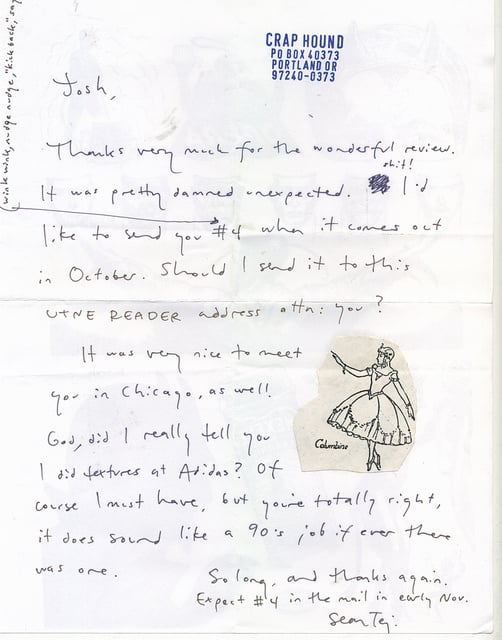 (wink wink, nudge nudge, "kick back," say
CRAP HOUND
PO BOX 40373
PORTLAND OR
97240-0373
Josh,
Thanks very much for the wonderful review.
shit!
It was pretty damned unexpected. I'd
like to send you #4 when it comes out
in October. Should I send it to this
UTNE READER address attn: you?
It was very nice to meet
you in Chicago, as well!
God, did I really tell you
I did textures at Adidas? Of
course I must have, but you're totally right,
it does sound like a 90's job if ever there
was one.
Columbine
So long, and thanks again.
Expect #4 in the mail in early Nov.
Sean Tej.